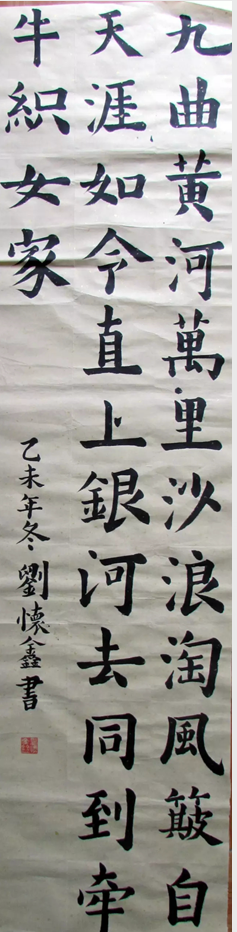 九曲黃河萬里沙浪淘風簸自
天涯如今直上銀河去同到牽
牛織女家
乙未年冬劉懷鑫書